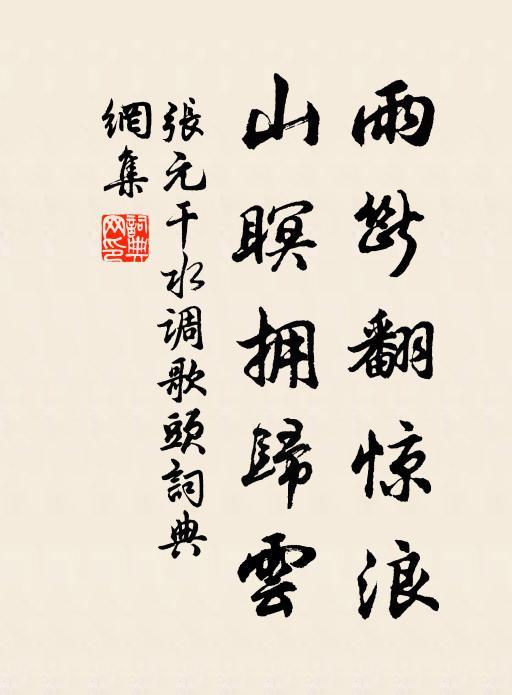 雨斷翻惊浪
山瞑拥歸雲
張元干水调歌頭詞典
網集
詞典
网印